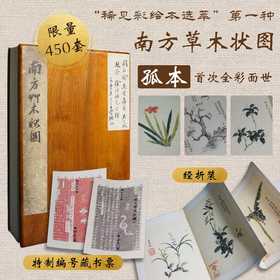 “稀见彩绘本选萃”第一种
限量
450套
南方草木状图
孤本
首次全彩面世
南方草木状图
经折装
特制编号藏书票